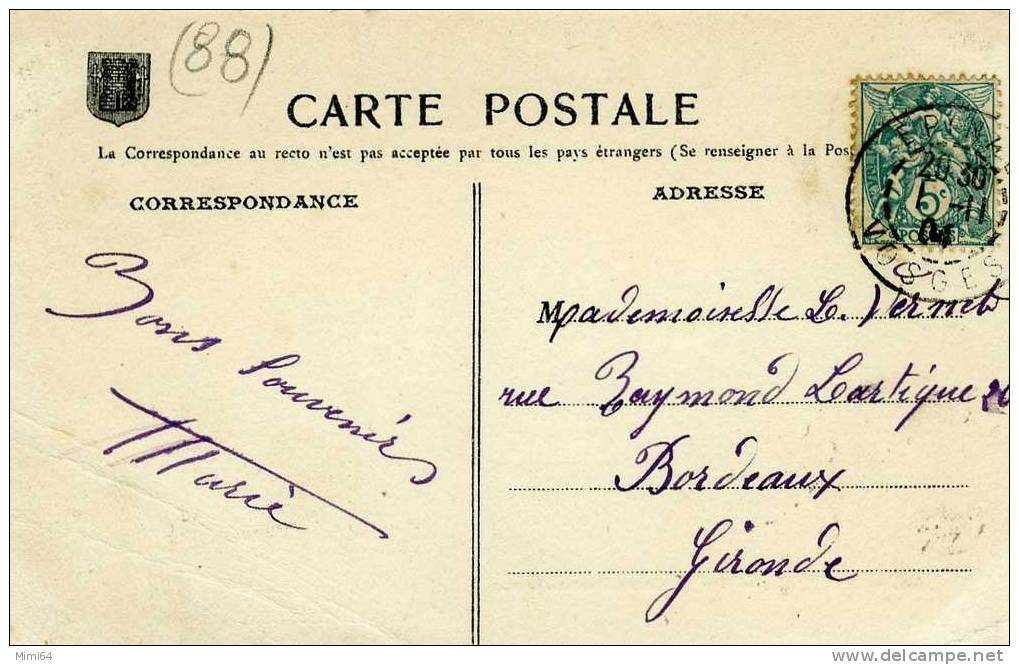 (88)
CARTE POSTALE
La Correspondance au recto n'est pas acceptée par tous les pays étrangers (Se renseigner à la Pos
CORRESPONDANCE
ADRESSE
EPINAL
20·30
5 -11
04
VOSGES
5c
POSTES
Bons Souvenirs
Marie
Mademoiselle L. Vernet
rue Raymond Lartigue 20
Bordeaux
Gironde
Mimi64
www.delcampe.net